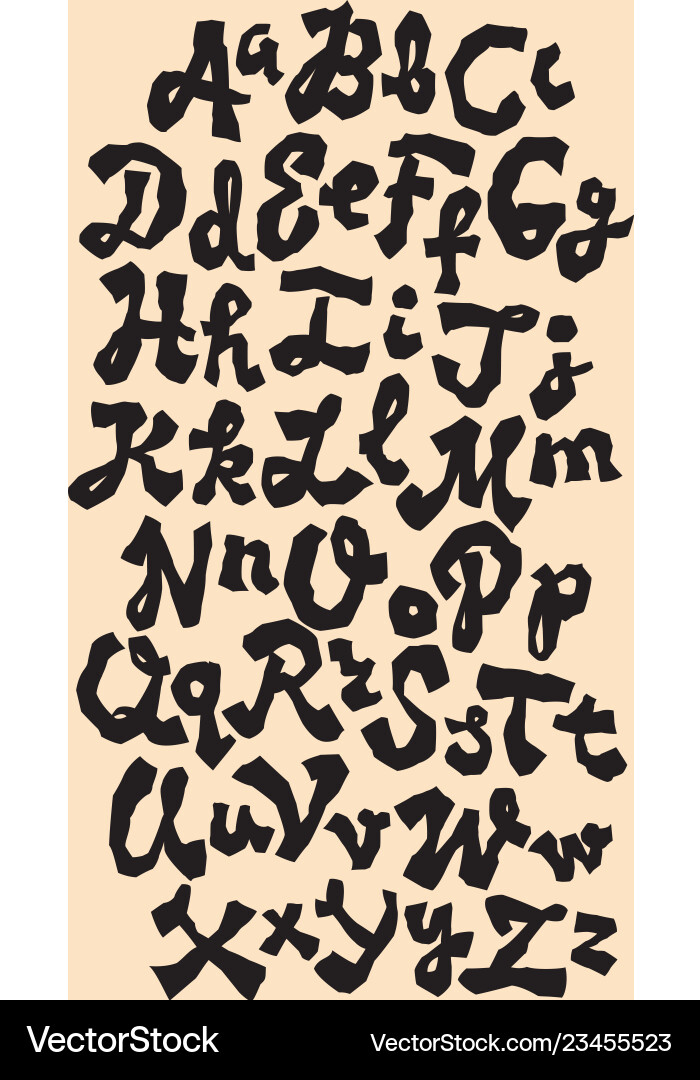 Aa Bb Cc
Dd Ee Ff Gg
Hh Ii Jj
Kk Ll Mm
Nn Oo Pp
Qq Rr Ss Tt
Uu Vv Ww
Xx Yy Zz
VectorStock® VectorStock.com/23455523